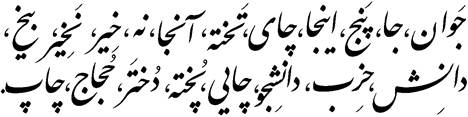 جَوان، جا، پَنج، اینجا، چای، تَخته، آنجا، نه، خیر، نَخِیر، بیخ،
دانِش، حِزب، دانِشجو، چایی، پُخته، دُختَر، حُجاج، چاپ.